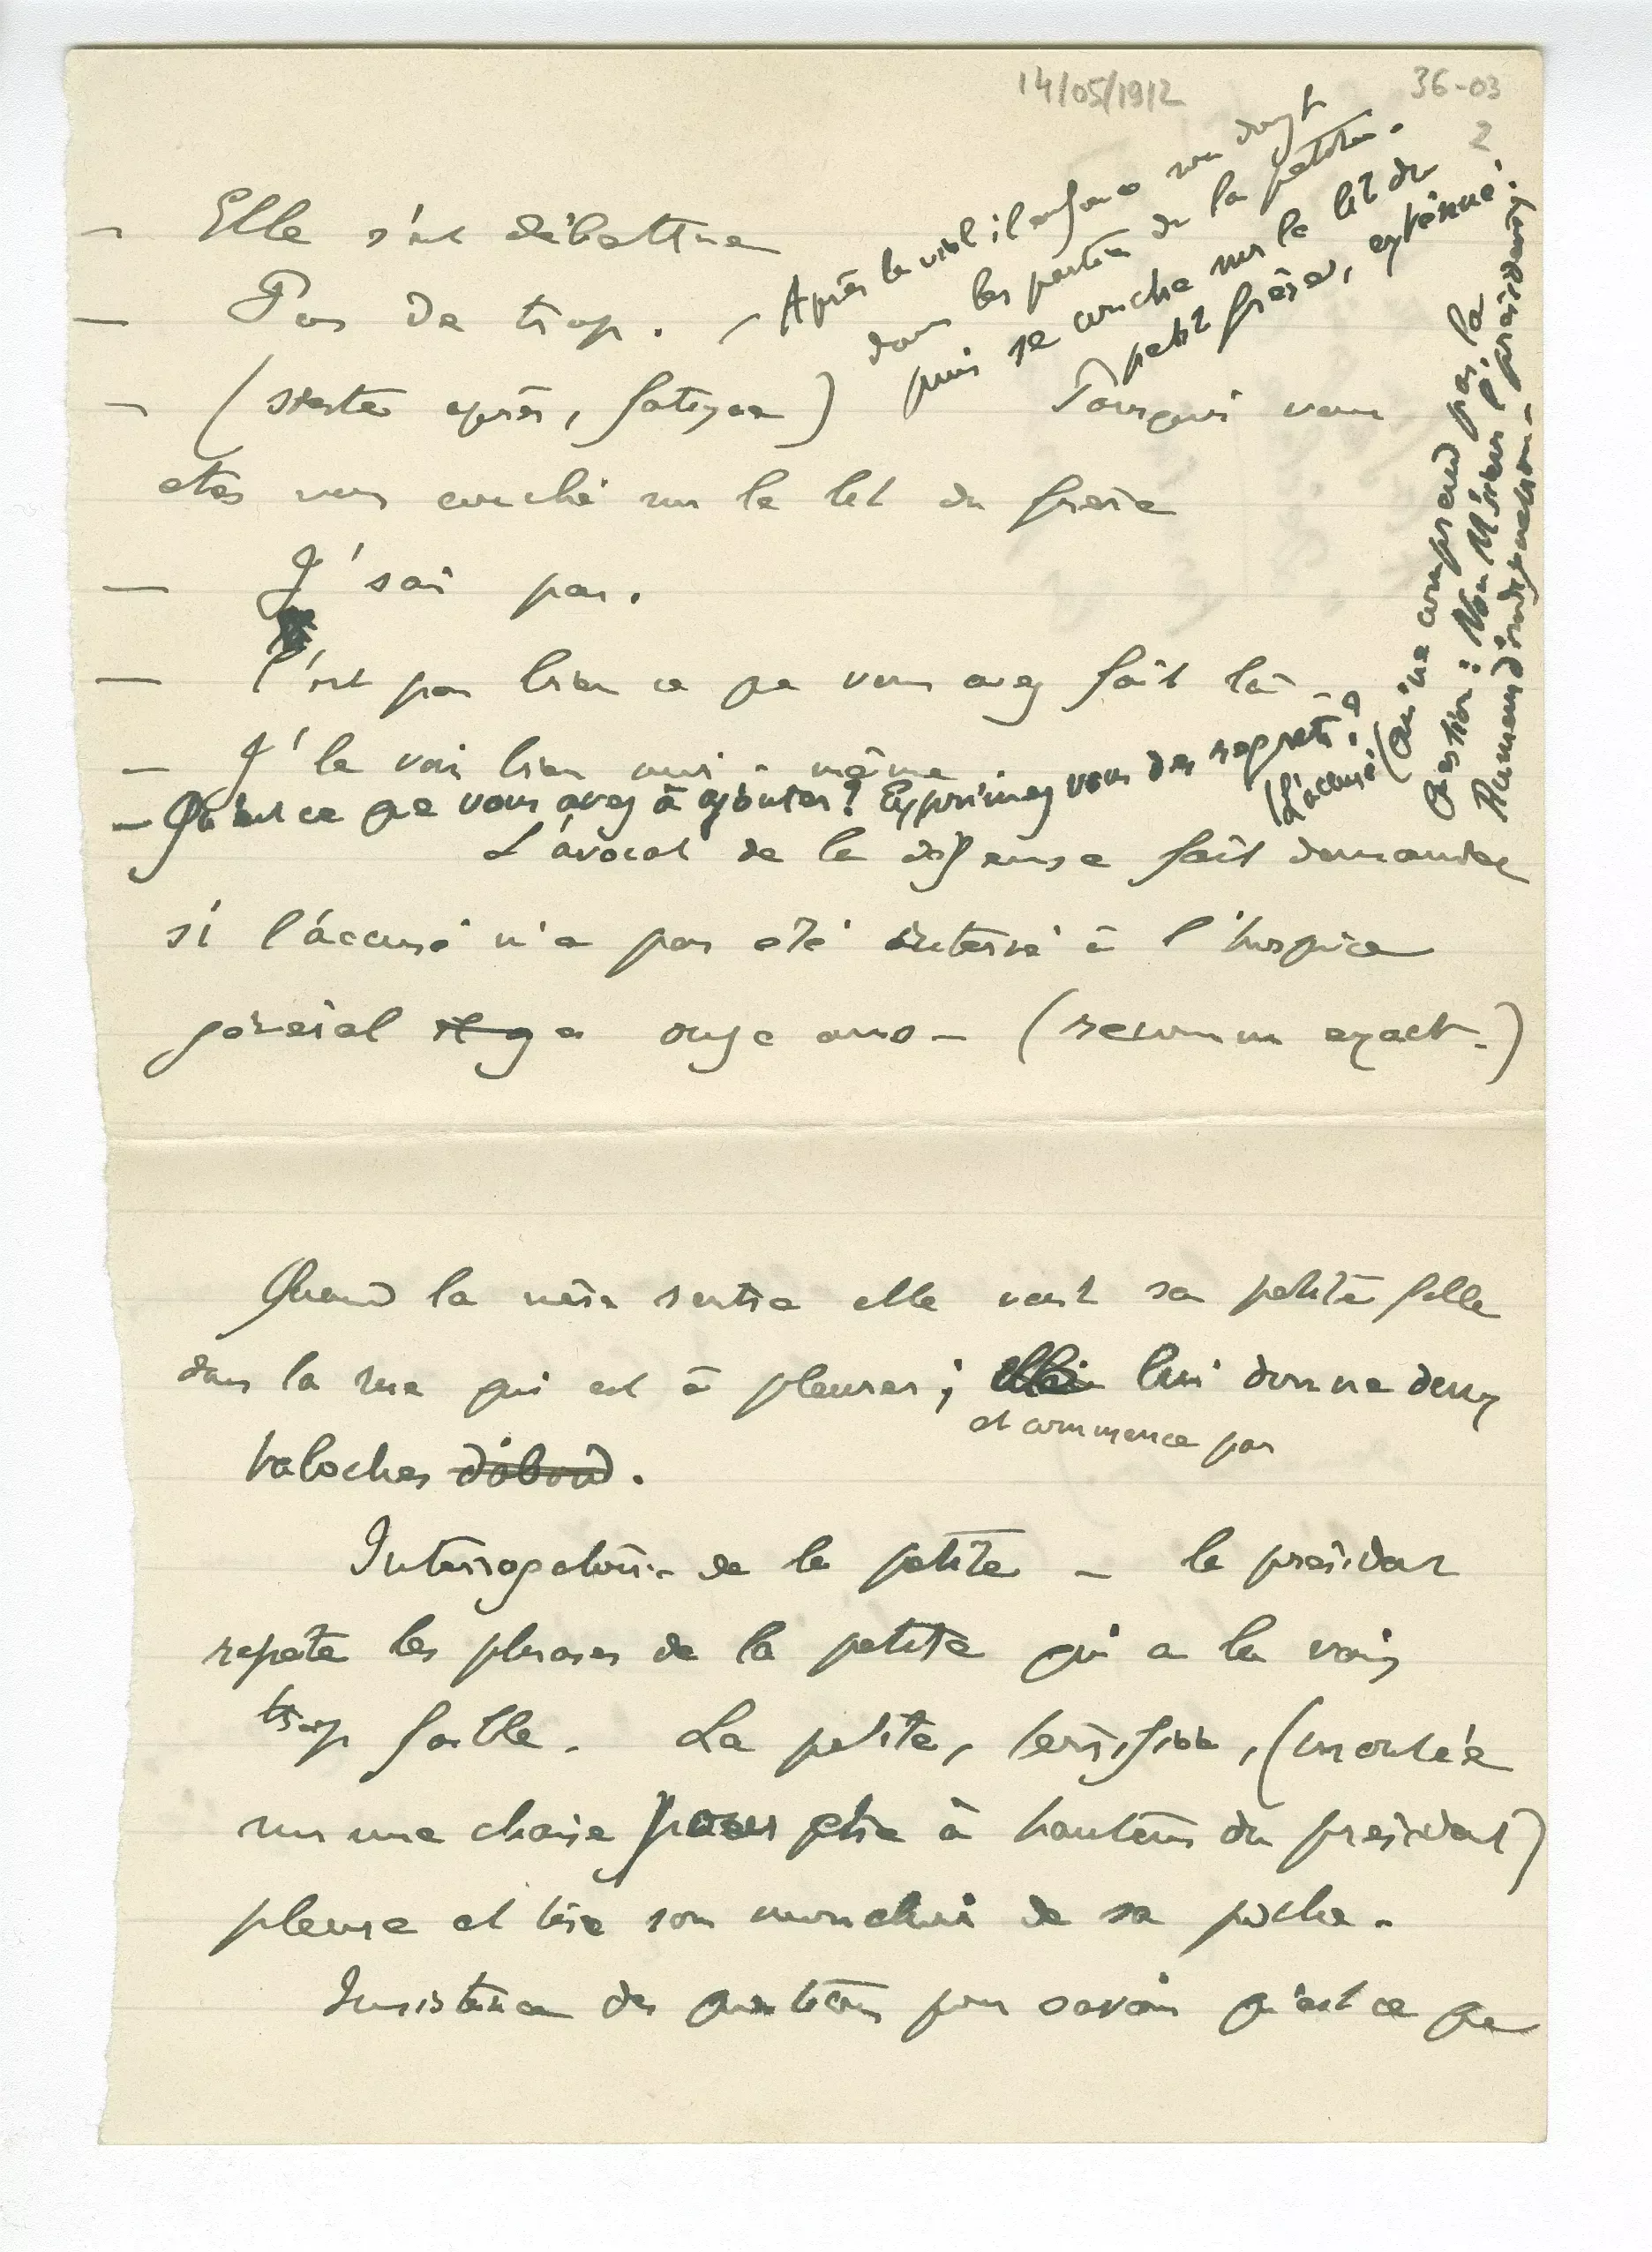 14/05/1912
36-03
2
— Elle s'est débattue
— Pas de trop. —
Après le viol il enfonce son doigt
dans les parties de la petite.
puis se couche sur le lit du
petit frère, exténué.
— (sieste après, fatigue) Pourquoi vous
etes vous couché sur le lit du frère
— J'sai pas.
— C'est pas bien ce que vous avez fait là —
— J'le vois bien moi-même
— Qu'est ce que vous avez à ajouter? Exprimez vous des regrets?
(L'accusé, (qui ne comprend pas la
question: Non M'sieur l' président.
Rumeur d'indignation —
L'avocat de la défense fait demander
si l'accusé n'a pas été interné à l'hospice
général il y a onze ans — (reconnu exact.)
Quand la mère rentre elle voit sa petite fille
dans la rue qui est à pleurer; lui donne deux
et commence par
taloches d'abord.
Interrogatoire de la petite — le président
repète les phrases de la petite qui a la voix
trop faible. La petite, (montée
sur une chaise pour être à hauteur du président)
pleure et tire son mouchoir de sa poche.
Insistance des questions pour savoir qu'est ce que